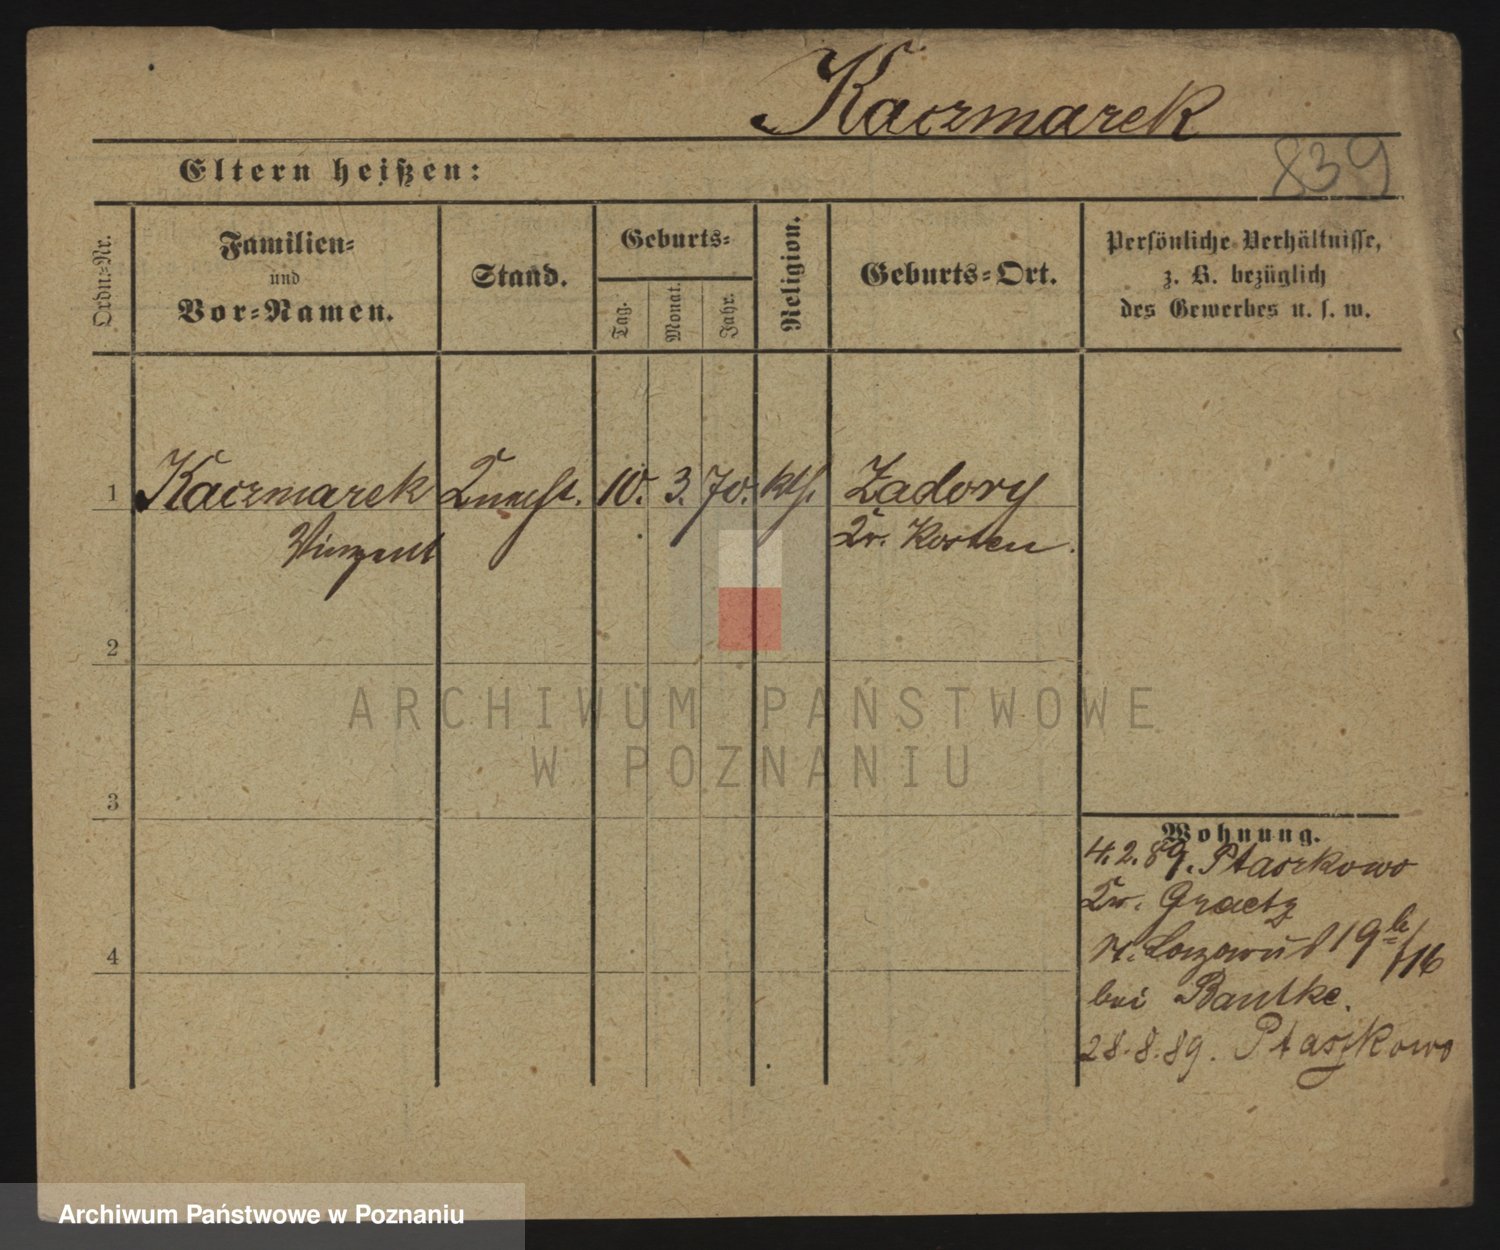 Kaczmarek
Eltern heißen:
839
Ordn.-Nr.
Familien-
und
Vor-Namen.
Stand.
Geburts-
Tag.
Monat.
Jahr.
Religion.
Geburts-Ort.
Persönliche Verhältnisse,
z. B. bezüglich
des Gewerbes u. s. w.
1 Kaczmarek Knecht. 10. 3. 70. kth. Zadory
Vinzent Kr. Kosten.
2
3
4
Wohnung.
4.2.89. Ptaszkowo
Kr. Graetz
St. Lazarus 19 b/16
bei Bantke.
28.8.89. Ptaszkowo
ARCHIWUM PAŃSTWOWE
W POZNANIU
Archiwum Państwowe w Poznaniu